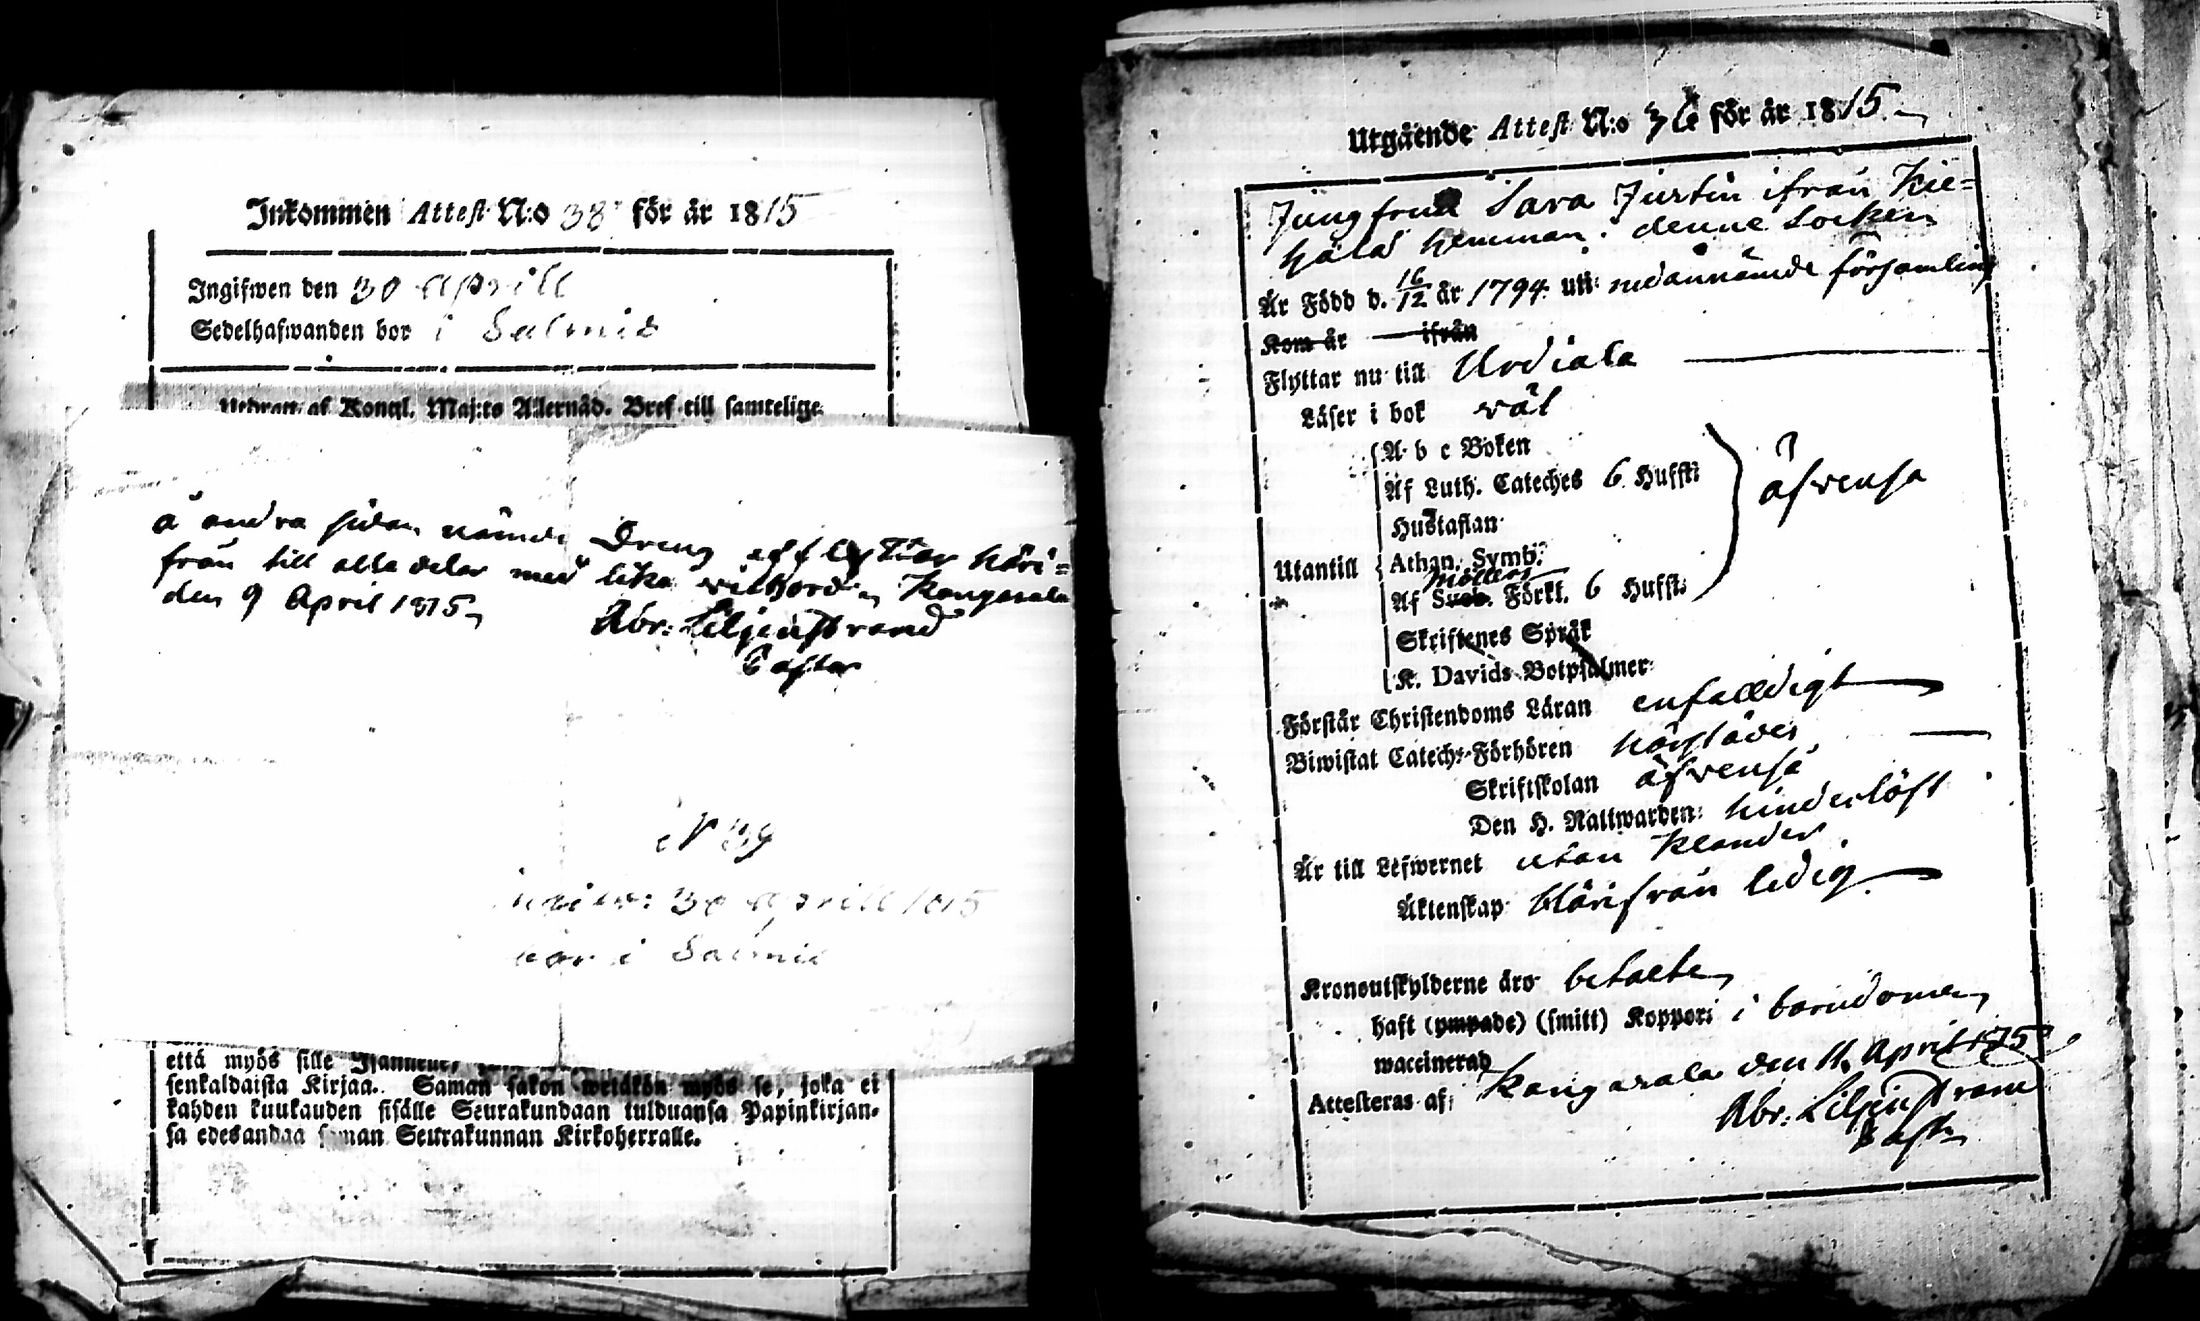 Inkommen Attest N:o 38 för år 1815
Ingifwen den 30 Aprill
Sedelhafwanden bor i Salmis
Utdrag af Kongl. Maj:ts Allernåd. Bref till samtelige
å andra sidan nämde Dreng afflyttar häri=
från till alla delar med lika witsord, Kangasala
den 9 April 1815
Abr: Liljenstrand
Pastor
N 39
ingifw: 30 Aprill 1815
bor i Salmis
että myös sille Isännelle,
senkaldaista Kirjaa. Saman sakon wetäkön myös se, joka ei
kahden kuukauden sisälle Seurakundaan tulduansa Papinkirjan=
sa edesandaa saman Seurakunnan Kirkoherralle.
Utgående Attest N:o 36 för år 1815
Jungfrun Sara Justin ifrån Kie=
hälä hemman i denne Socken
Är Född d. 16/12 år 1794 uti nedannämde församling
Kom år ifrån
Flyttar nu till Urdiala
Läser i bok väl
A b c Boken
Af Luth. Cateches 6 Hufft:
Hustaflan
äfvenså
Utantill Athan. Symb:
Möllers
Af Sveb. Förkl. 6 Hufft:
Skriftenes Språk
K. Davids Botpsalmer
Förstår Christendoms Läran enfalldigt
Biwistat Catech:-Förhören
Skriftskolan äfvenså
Den H. Nattwarden: hinderlöst
Är till Lefwernet utan klander
Äktenskap härifrån ledig
Kronoutskylderne äro betalte
haft (ympade) (smitt) Koppori i barndomen
waccinerad
Attesteras af; Kangasala den 11 April 1815
Abr: Liljenstrand
Past: